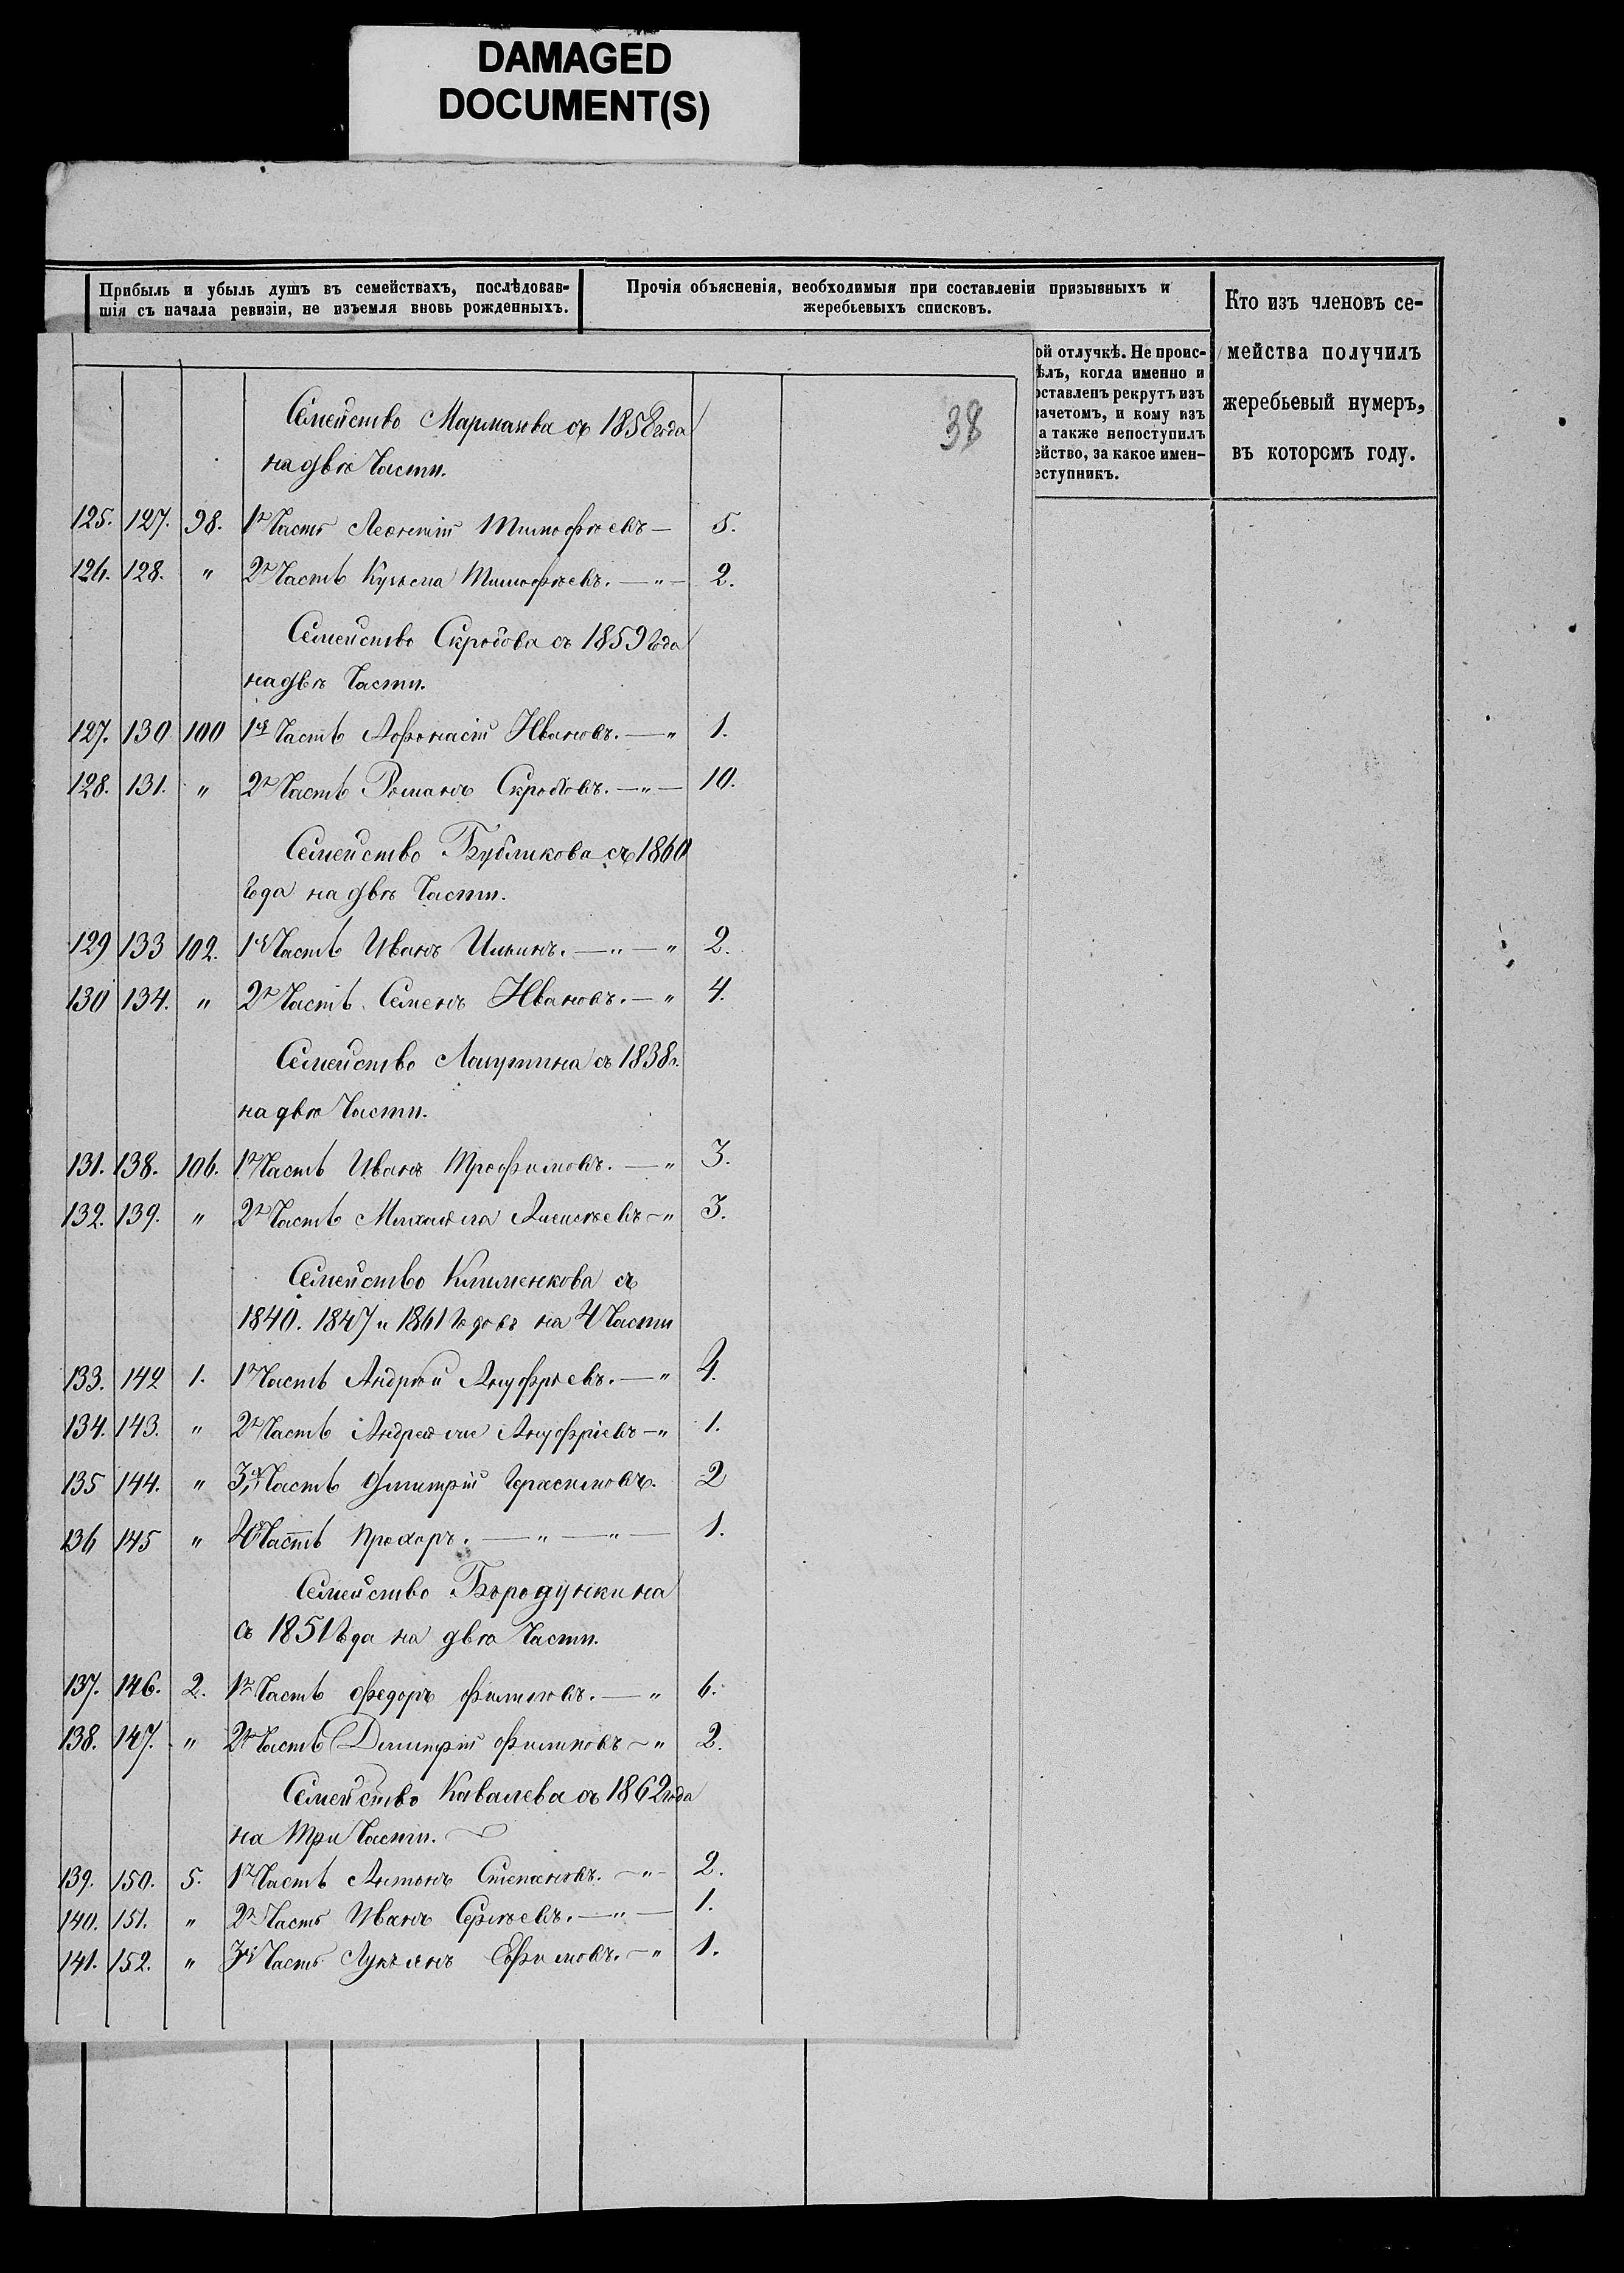 DAMAGED
DOCUMENT(S)
Прибыль и убыль душъ въ семействахъ, послѣдовав-
шія съ начала ревизіи, не изъемля вновь рожденныхъ.
Прочія объясненія, необходимыя при составленіи призывныхъ и
жеребьевыхъ списковъ.
Кто изъ членовъ се-
мейства получилъ
жеребьевый нумеръ,
въ которомъ году.
ой отлучкѣ. Не проис-
ѣлъ, когда именно и
оставленъ рекрутъ изъ
зачетомъ, и кому изъ
а также непоступилъ
ейство, за какое имен-
еступникъ.
38
Семейство Марманова съ 1858 года
на двѣ Части.
125. 127. 98. 1я Часть Леонтій Тимофѣевъ — 5.
126. 128. " 2я Часть Кузьма Тимофѣевъ. — " — 2.
Семейство Скробова съ 1859 года
на двѣ Части.
127. 130 100 1я Часть Афонасій Ивановъ. — " 1.
128. 131. " 2я Часть Романъ Скробовъ. — " — 10.
Семейство Бубликова съ 1860
года на двѣ Части.
129 133 102. 1я Часть Иванъ Ильинъ. — " — " 2.
130 134. " 2я Часть Семенъ Ивановъ. — " 4.
Семейство Лапутина съ 1838 г.
на двѣ Части.
131. 138. 106. 1я Часть Иванъ Трофимовъ. — " 3.
132. 139. " 2я Часть Михайла Алексѣевъ — " 3.
Семейство Клименкова съ
1840. 1847 и 1861 Годовъ на 4 Части
133. 142 1. 1я Часть Андрѣй Ануфрѣевъ. — " 4.
134. 143. " 2я Часть Ануфріевъ — " 1.
135 144. " 3я Часть Дмитрій Герасимовъ. 2
136 145 " 4я Часть Прохоръ. — " — " — 1.
Семейство Бородункина
съ 1851 Года на двѣ Части.
137. 146. 2. 1я Часть Федоръ Филиповъ. — " 6.
138. 147. " 2я Часть Димитрій Филиповъ — " 2.
Семейство Кавалева съ 1862 года
на Три Части.
139. 150. 5. 1я Часть Антонъ Степановъ. — " — 2.
140. 151. " 2я Часть Иванъ Сергѣевъ. — " — 1.
141. 152. " 3я Часть Лукьянъ Ефимовъ. — " 1.